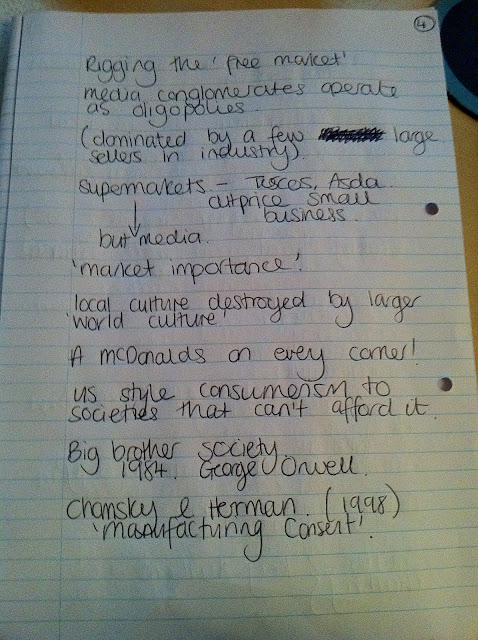 4
Rigging the 'free market'
media conglomerates operate
as oligopolies.
(dominated by a few large
sellers in industry).
supermarkets - Tescos, Asda.
cutprice small
business.
but media.
'market importance'.
local culture destroyed by larger
'world culture'
A mcDonalds on every corner!
US style consumerism to
societies that can't afford it.
Big brother society.
1984. George Orwell.
Chomsky & Herman. (1998)
'manufacturing Consent'.